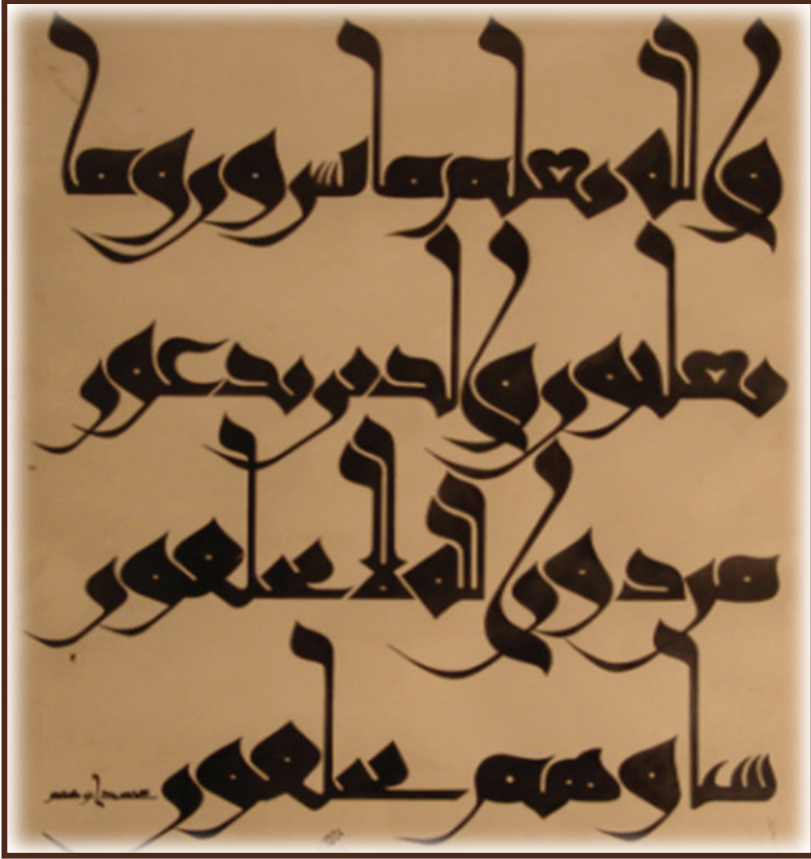 والله يعلم ما تسرون وما
تعلنون والذين يدعون
من دون الله لا يخلقون
شيئا وهم يخلقون